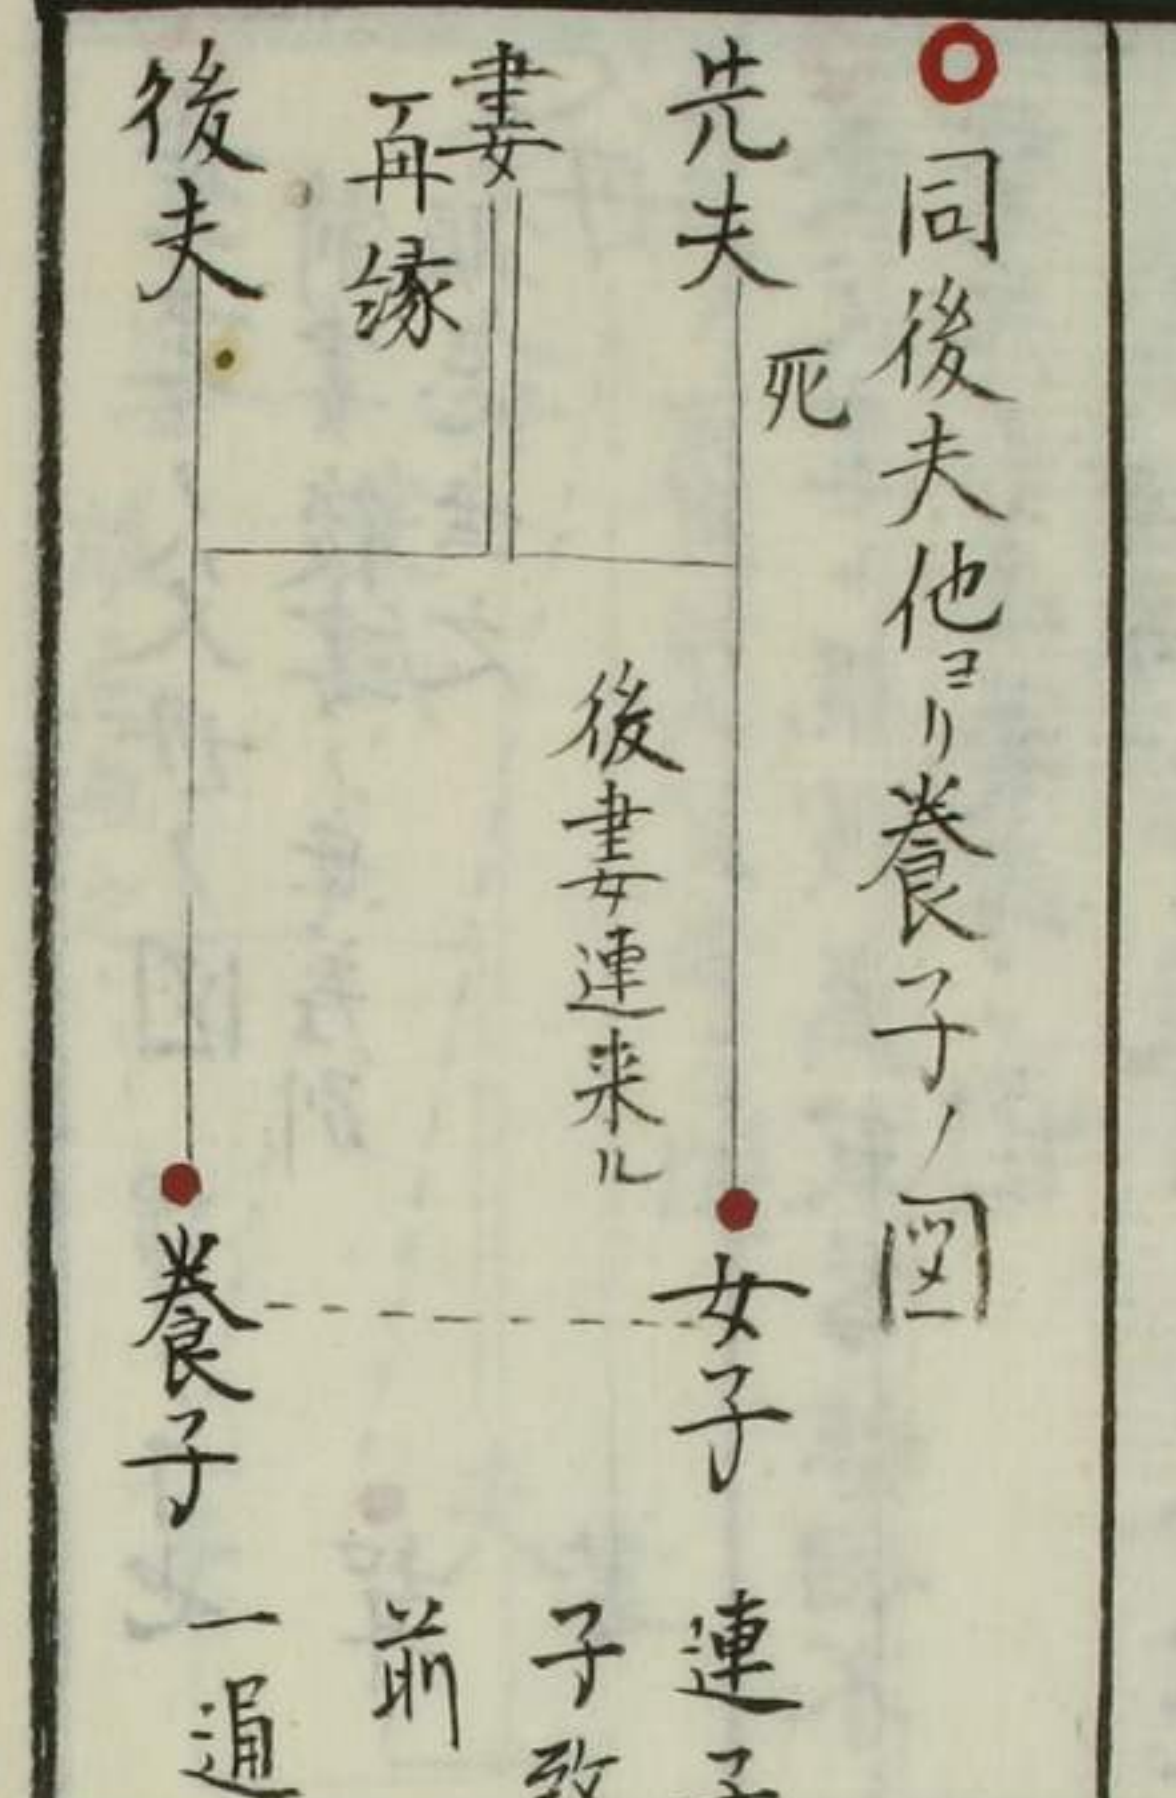 同後夫他ヨリ養子ノ図
先夫
死
妻
再縁
後夫
後妻連来ル
女子
養子
連子
子致
前
一通